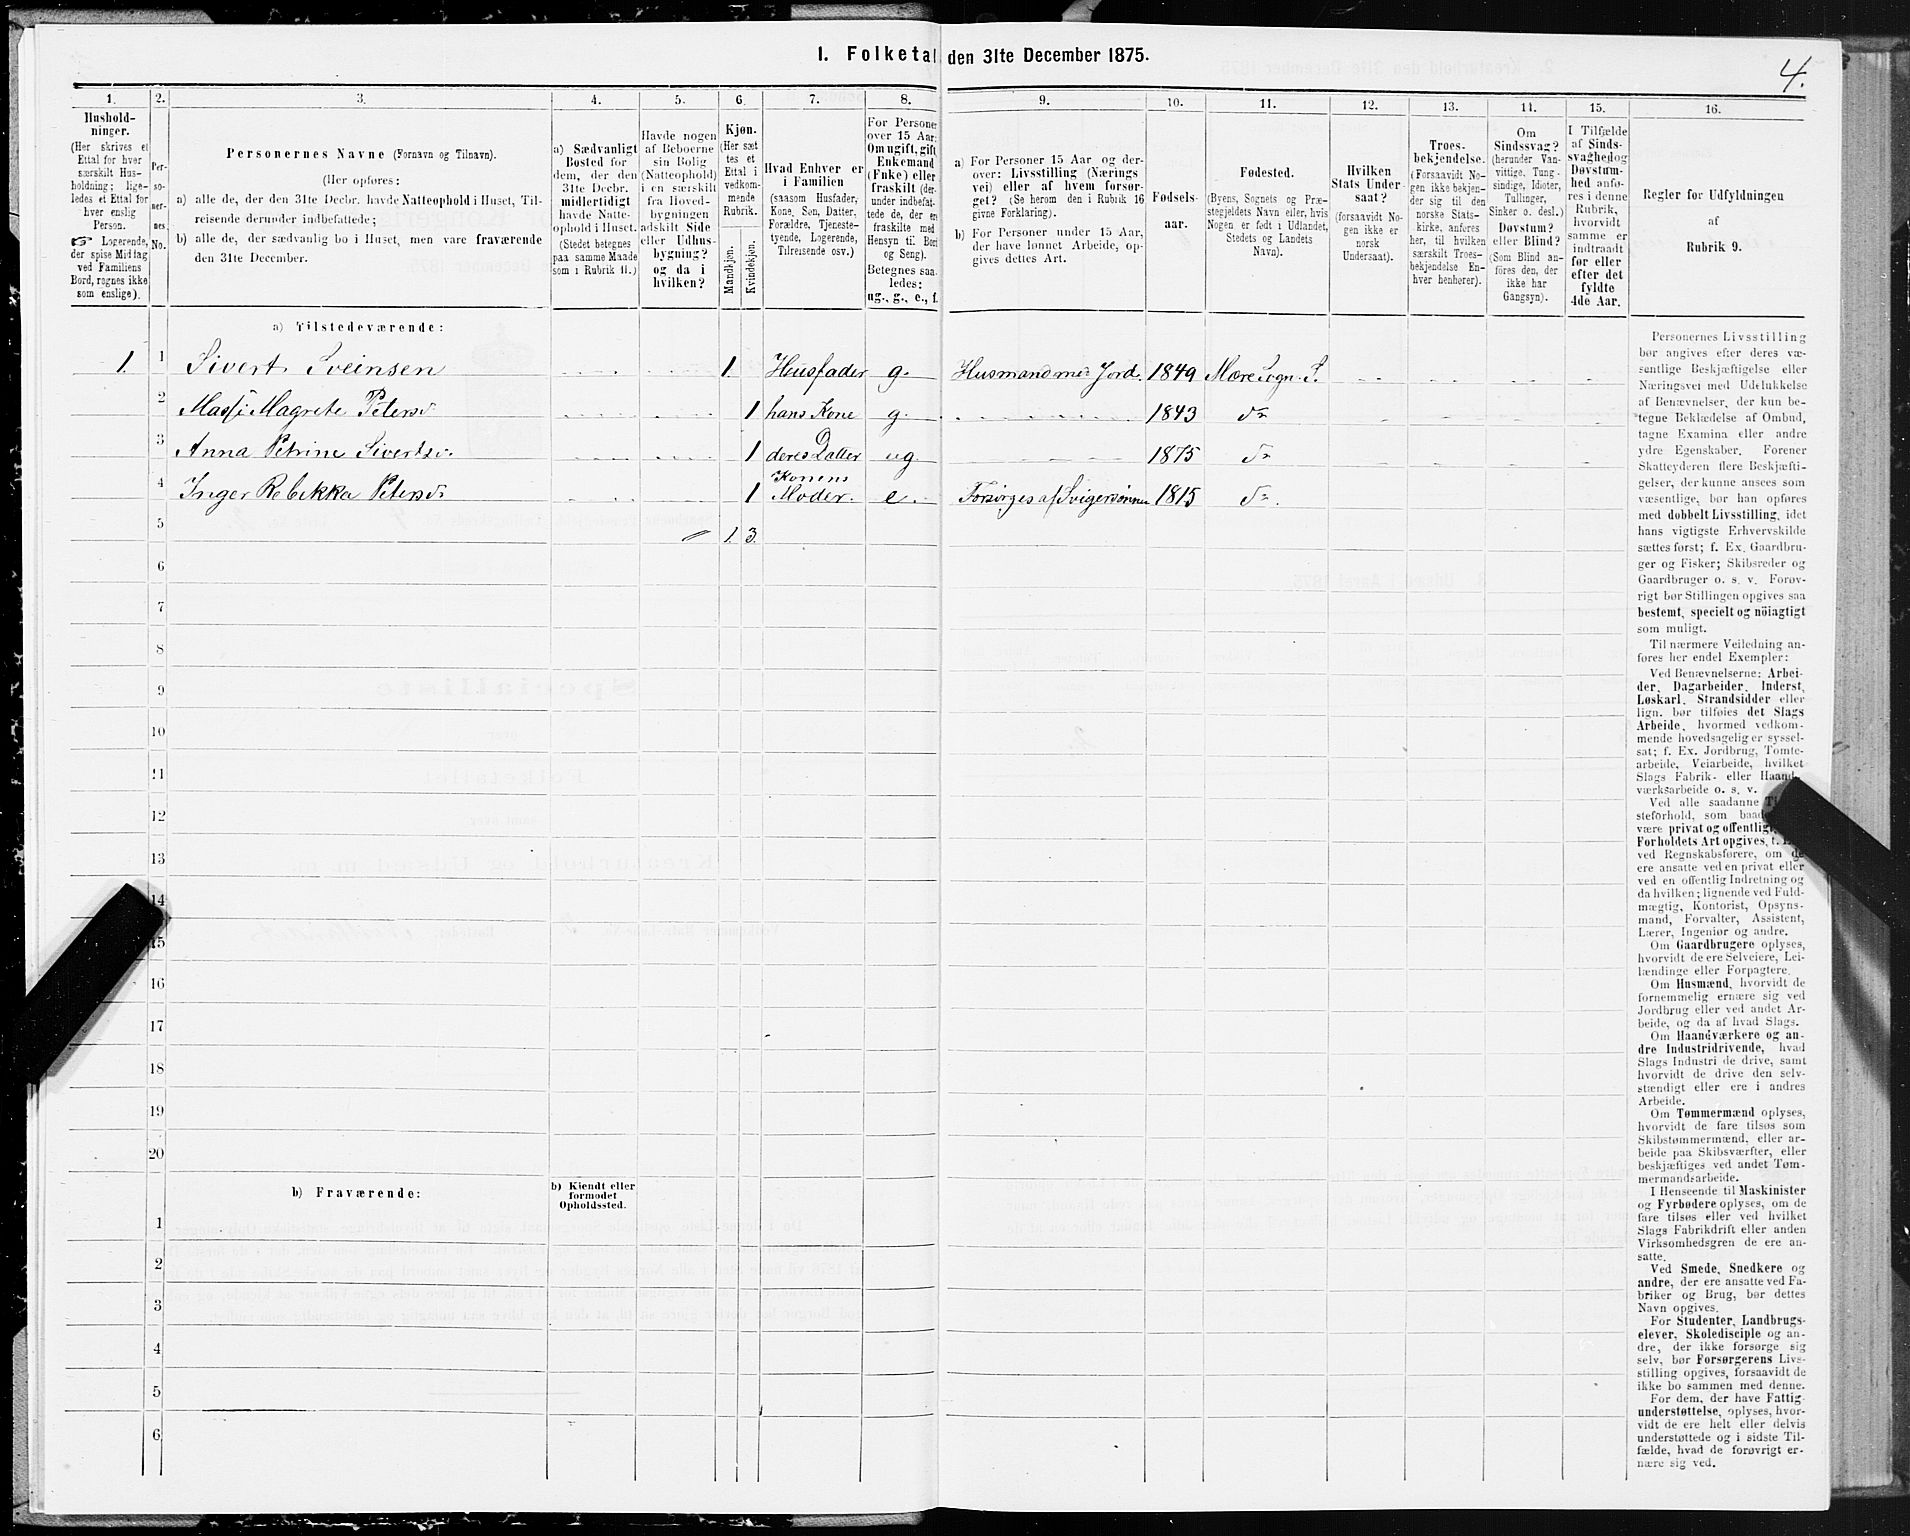 1. Folketal den 31te December 1875.
4.
1. 2. 3. 4. 5. 6. 7. 8. 9. 10. 11. 12. 13. 14. 15. 16.
Husholdninger.
(Her skrives et
Ettal for hver
særskilt Hus-
holdning; lige-
ledes et Ettal for
hver enslig
Person.
☞ Logerende,
der spise Middag
ved Familiens
Bord, regnes ikke
som enslige).
Per-
so-
ner-
nes
No.
Personernes Navne (Fornavn og Tilnavn).
(Her opføres:
a) alle de, der den 31te Decbr. havde Natteophold i Huset, Til-
reisende derunder indbefattede;
b) alle de, der sædvanlig bo i Huset, men vare fraværende
den 31te December.
a) Sædvanligt
Bosted for
dem, der den
31te Decbr.
midlertidigt
havde Natte-
ophold i Huset.
(Stedet betegnes
paa samme Maade
som i Rubrik 11.)
Havde nogen
af Beboerne
sin Bolig
(Natteophold)
i en særskilt
fra Hoved-
bygningen
adskilt Side
eller Udhus-
bygning?
og da i
hvilken?
Kjøn.
(Her sæt-
tes et
Ettal i
vedkom-
mende
Rubrik.
Mandkjøn.
Kvindekjøn.
Hvad Enhver er
i Familien
(saasom Husfader,
Kone, Søn, Datter,
Forældre, Tjeneste-
tyende, Logerende,
Tilreisende osv.)
For Personer
over 15 Aar:
Om ugift, gift,
Enkemand
(Enke) eller
fraskilt (der-
under indbefat-
tede de, der ere
fraskilte med
Hensyn til Bord
og Seng).
Betegnes saa-
ledes:
ug., g., e., f.
a) For Personer 15 Aar og der-
over: Livsstilling (Nærings-
vei) eller af hvem forsør-
get? (Se herom den i Rubrik 16
givne Forklaring).
b) For Personer under 15 Aar,
der have lønnet Arbeide, op-
gives dettes Art.
Fødsels-
aar.
Fødested.
(Byens, Sognets og Præ-
stegjeldets Navn eller, hvis
Nogen er født i Udlandet,
Stedets og Landets
Navn).
Hvilken
Stats Under-
saat?
(forsaavidt No-
gen ikke er
norsk
Undersaat).
Troes-
bekjendelse.
(Forsaavidt No-
gen ikke bekjen-
der sig til den
norske Stats-
kirke, anføres
her, til hvilken
særskilt Troes-
bekjendelse En-
hver henhører).
Om
Sindssvag?
(herunder Van-
vittige, Tung-
sindige, Idioter,
Tullinger,
Sinker o. desl.)
Døvstum?
eller Blind?
(Som Blind an-
føres den, der
ikke har
Gangsyn).
I Tilfælde
af Sinds-
svaghed og
Døvstum-
hed anfø-
res i denne
Rubrik,
hvorvidt
samme er
indtraadt
før eller
efter det
fyldte
4de Aar.
Regler for Udfyldningen
af
Rubrik 9.
a) Tilstedeværende:
1. 1 Sivert Sveinsen 1. Husfader g. Husmand med Jord. 1849 Mære Sogn. S.
2 Massi Magrete Petersd 1 hans Kone g. 1843 do
3 Anna Petrine Sivertsd. 1 deres Datter ug. 1875 do
4 Inger Rebekka Petersd 1 Konens Moder. e. Forsørges af Svigersønnen 1815 do.
5 1. 3.
6
7
8
9
10
11
12
13
14
15
16
17
18
19
20
b) Fraværende:
b) Kjendt eller
formodet
Opholdssted.
1
2
3
4
5
6
Personernes Livsstilling
bør angives efter deres væ-
sentlige Beskjæftigelse eller
Næringsvei med Udelukkelse
af Benævnelser, der kun be-
tegne Beklædelse af Ombud,
tagne Examina eller andre
ydre Egenskaber. Forener
Skatteyderen flere Beskjæfti-
gelser, der kunne ansees som
væsentlige, bør han opføres
med dobbelt Livsstilling, idet
hans vigtigste Erhvervskilde
sættes først; f. Ex. Gaardbru-
ger og Fisker; Skibsreder og
Gaardbruger o. s. v. Forøv-
rigt bør Stillingen opgives saa
bestemt, specielt og nöiagtigt
som muligt.
Til nærmere Veiledning an-
føres her endel Exempler:
Ved Benævnelserne: Arbei-
der, Dagarbeider, Inderst,
Løskarl, Strandsidder eller
lign. bør tilføies det Slags
Arbeide, hvormed vedkom-
mende hovedsagelig er syssel-
sat; f. Ex. Jordbrug, Tomte-
arbeide, Veiarbeide, hvilket
Slags Fabrik- eller Haand-
værksarbeide o. s. v.
Ved alle saadanne
steforhold, som
være privat og offentligt,
Forholdets Art opgives,
ved Regnskabsførere, om de
ere ansatte ved en privat eller
ved en offentlig Indretning og
da hvilken; lignende ved Fuld-
mægtig, Kontorist, Opsyns-
mand, Forvalter, Assistent,
Lærer, Ingeniør og andre.
Om Gaardbrugere oplyses,
hvorvidt de ere Selveiere, Lei-
lændinge eller Forpagtere.
Om Husmænd, hvorvidt de
fornemmelig ernære sig ved
Jordbrug eller ved andet Ar-
beide, og da af hvad Slags.
Om Haandværkere og an-
dre Industridrivende, hvad
Slags Industri de drive, samt
hvorvidt de drive den selv-
stændigt eller ere i andres
Arbeide.
Om Tømmermænd oplyses,
hvorvidt de fare tilsøs som
Skibstømmermænd, eller ar-
beide paa Skibsværfter, eller
beskjæftiges ved andet Tøm-
mermandsarbeide.
I Henseende til Maskinister
og Fyrbødere oplyses, om de
fare tilsøs eller ved hvilket
Slags Fabrikdrift eller anden
Virksomhedsgren de ere an-
satte.
Ved Smede, Snedkere og
andre, der ere ansatte ved Fa-
briker og Brug, bør dettes
Navn opgives.
For Studenter, Landbrugs-
elever, Skoledisciple og an-
dre, der ikke forsørge sig
selv, bør Forsørgerens Livs-
stilling opgives, forsaavidt de
ikke bo sammen med denne.
For dem, der have Fattig-
understøttelse, oplyses, hvor-
vidt de ere helt eller delvis
understøttede og i sidste Til-
fælde, hvad de forøvrigt er-
nære sig ved.